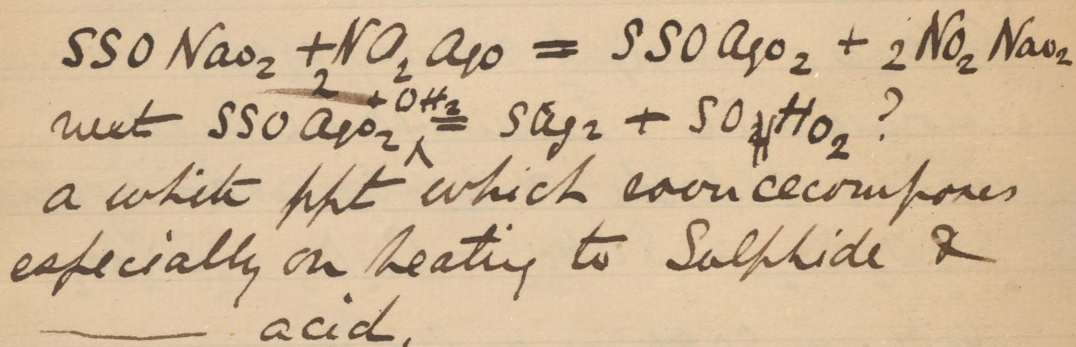 SSO Nao₂ + 2 NO₂ Ago = SSO Ago₂ + 2NO₂ Nao₂
next SSO Ago₂ + OH₂ = SAg₂ + SO₂ Ho₂ ?
a white ppt which soon cecomposes
especially on heating to Sulphide &
—— acid.